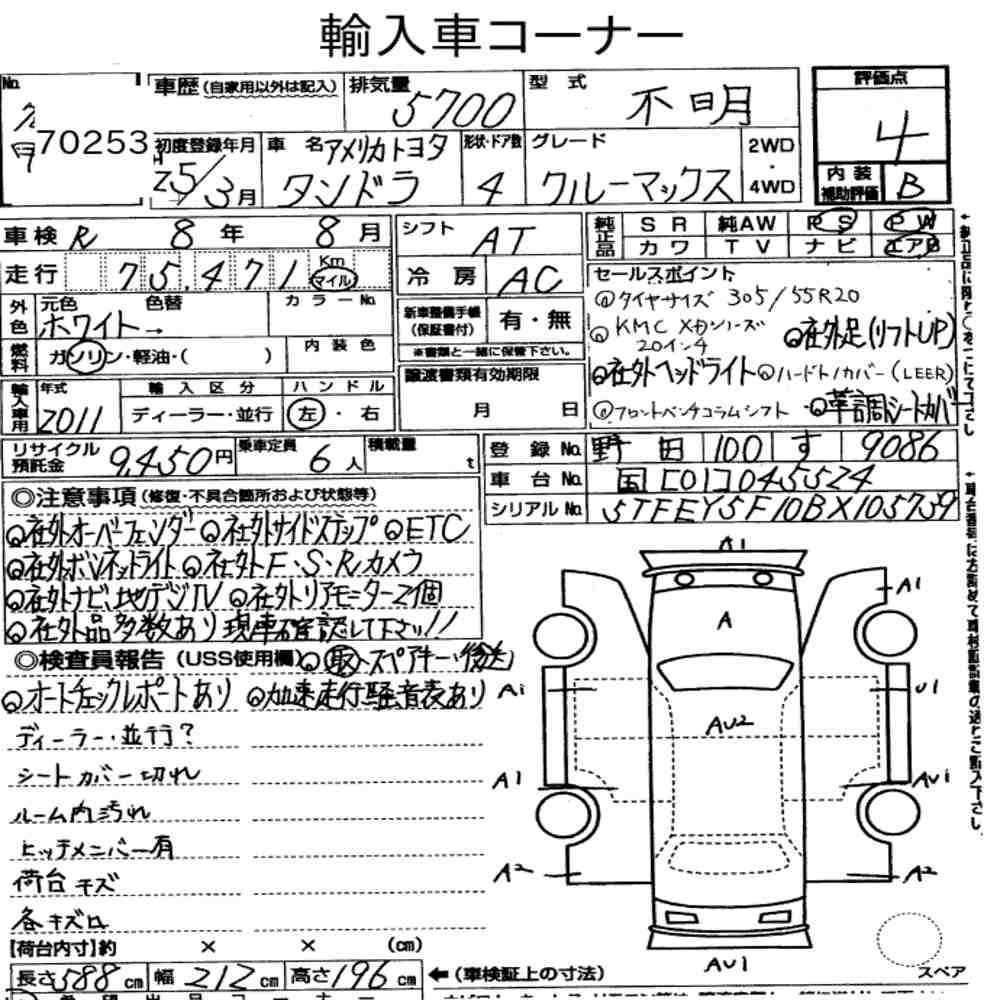 輸入車コーナー
No.
70253
車歴 (自家用以外は記入)
排気量
5700
型式
不明
評価点
4
内装補助評価
B
初度登録年月
25/3月
車名
アメリカトヨタ
タンドラ
形状・ドア数
4
グレード
クルーマックス
2WD
・
4WD
車検 R 8年 8月
シフト AT
純正品 SR 純AW PS PW
カワ TV ナビ エアB
走行 75,471 Km マイル
冷房 AC
セールスポイント
タイヤサイズ 305/55R20
KMC XDシリーズ
20インチ
社外足(リフトUP)
社外ヘッドライト
ハードトノカバー (LEER)
フロントベンチコラムシフト
革調シートカバー
外色 元色 色替 カラーNo.
ホワイト→
新車整備手帳
(保証書付)
有・無
※書類と一緒に保管下さい。
燃料 ガソリン・軽油・( )
内装色
譲渡書類有効期限
月 日
輸入車用 年式 輸入区分 ハンドル
2011 ディーラー・並行 左・右
リサイクル預託金 9,450円
乗車定員 6人
積載量 t
登録No. 野田 100 す 9086
車台No. 国[01]045524
シリアルNo. 5TFEY5F10BX105739
◎注意事項 (修復・不具合箇所および状態等)
社外オーバーフェンダー 社外サイドステップ ETC
社外ボンネットライト 社外F・S・Rカメラ
社外ナビ、地デジTV 社外リアモニター2個
社外品多数あり 現車確認して下サイ!!
◎検査員報告 (USS使用欄) 取・スペアキー(後送)
オートチェックレポートあり 加速走行騒音表あり
ディーラー・並行?
シートカバー切れ
ルーム内汚れ
ヒッチメンバー有
荷台キズ
各キズロ
【荷台内寸】約 × × (cm)
長さ588cm 幅212cm 高さ196cm
←(車検証上の寸法)
A1
A
A1
A1
U1
AU2
A1
AU1
A2
A2
AU1
スペア